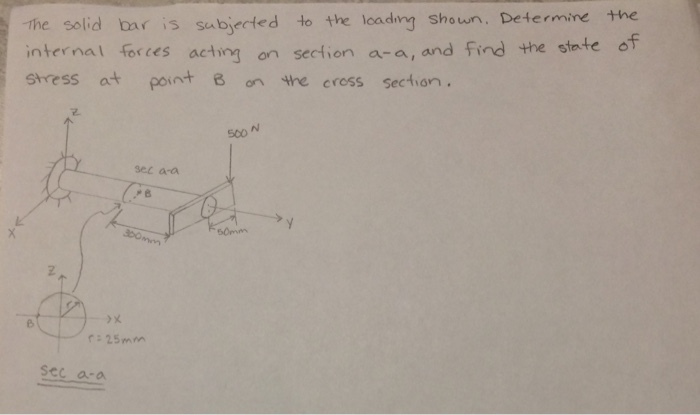 The solid bar is subjected to the loading shown. Determine the
internal forces acting on section a-a, and find the state of
stress at point B on the cross section.
Z
500 N
sec a-a
B
X
300mm
60mm
Y
Z
r
B
X
r=25mm
sec a-a